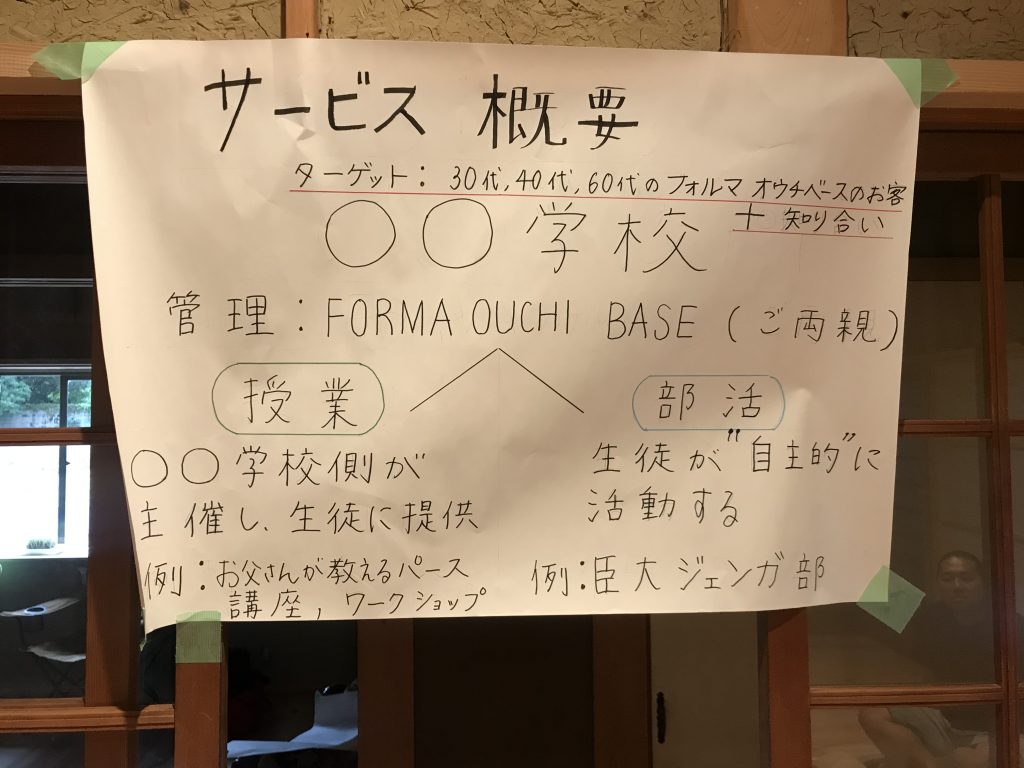 サービス 概要
ターゲット: 30代,40代,60代のフォルマ オウチベースのお客
+ 知り合い
○○学校
管理:FORMA OUCHI BASE (ご両親)
授業
○○学校側が
主催し、生徒に提供
例:お父さんが教えるパース
講座, ワークショップ
部活
生徒が"自主的"に
活動する
例:臣大ジェンガ部